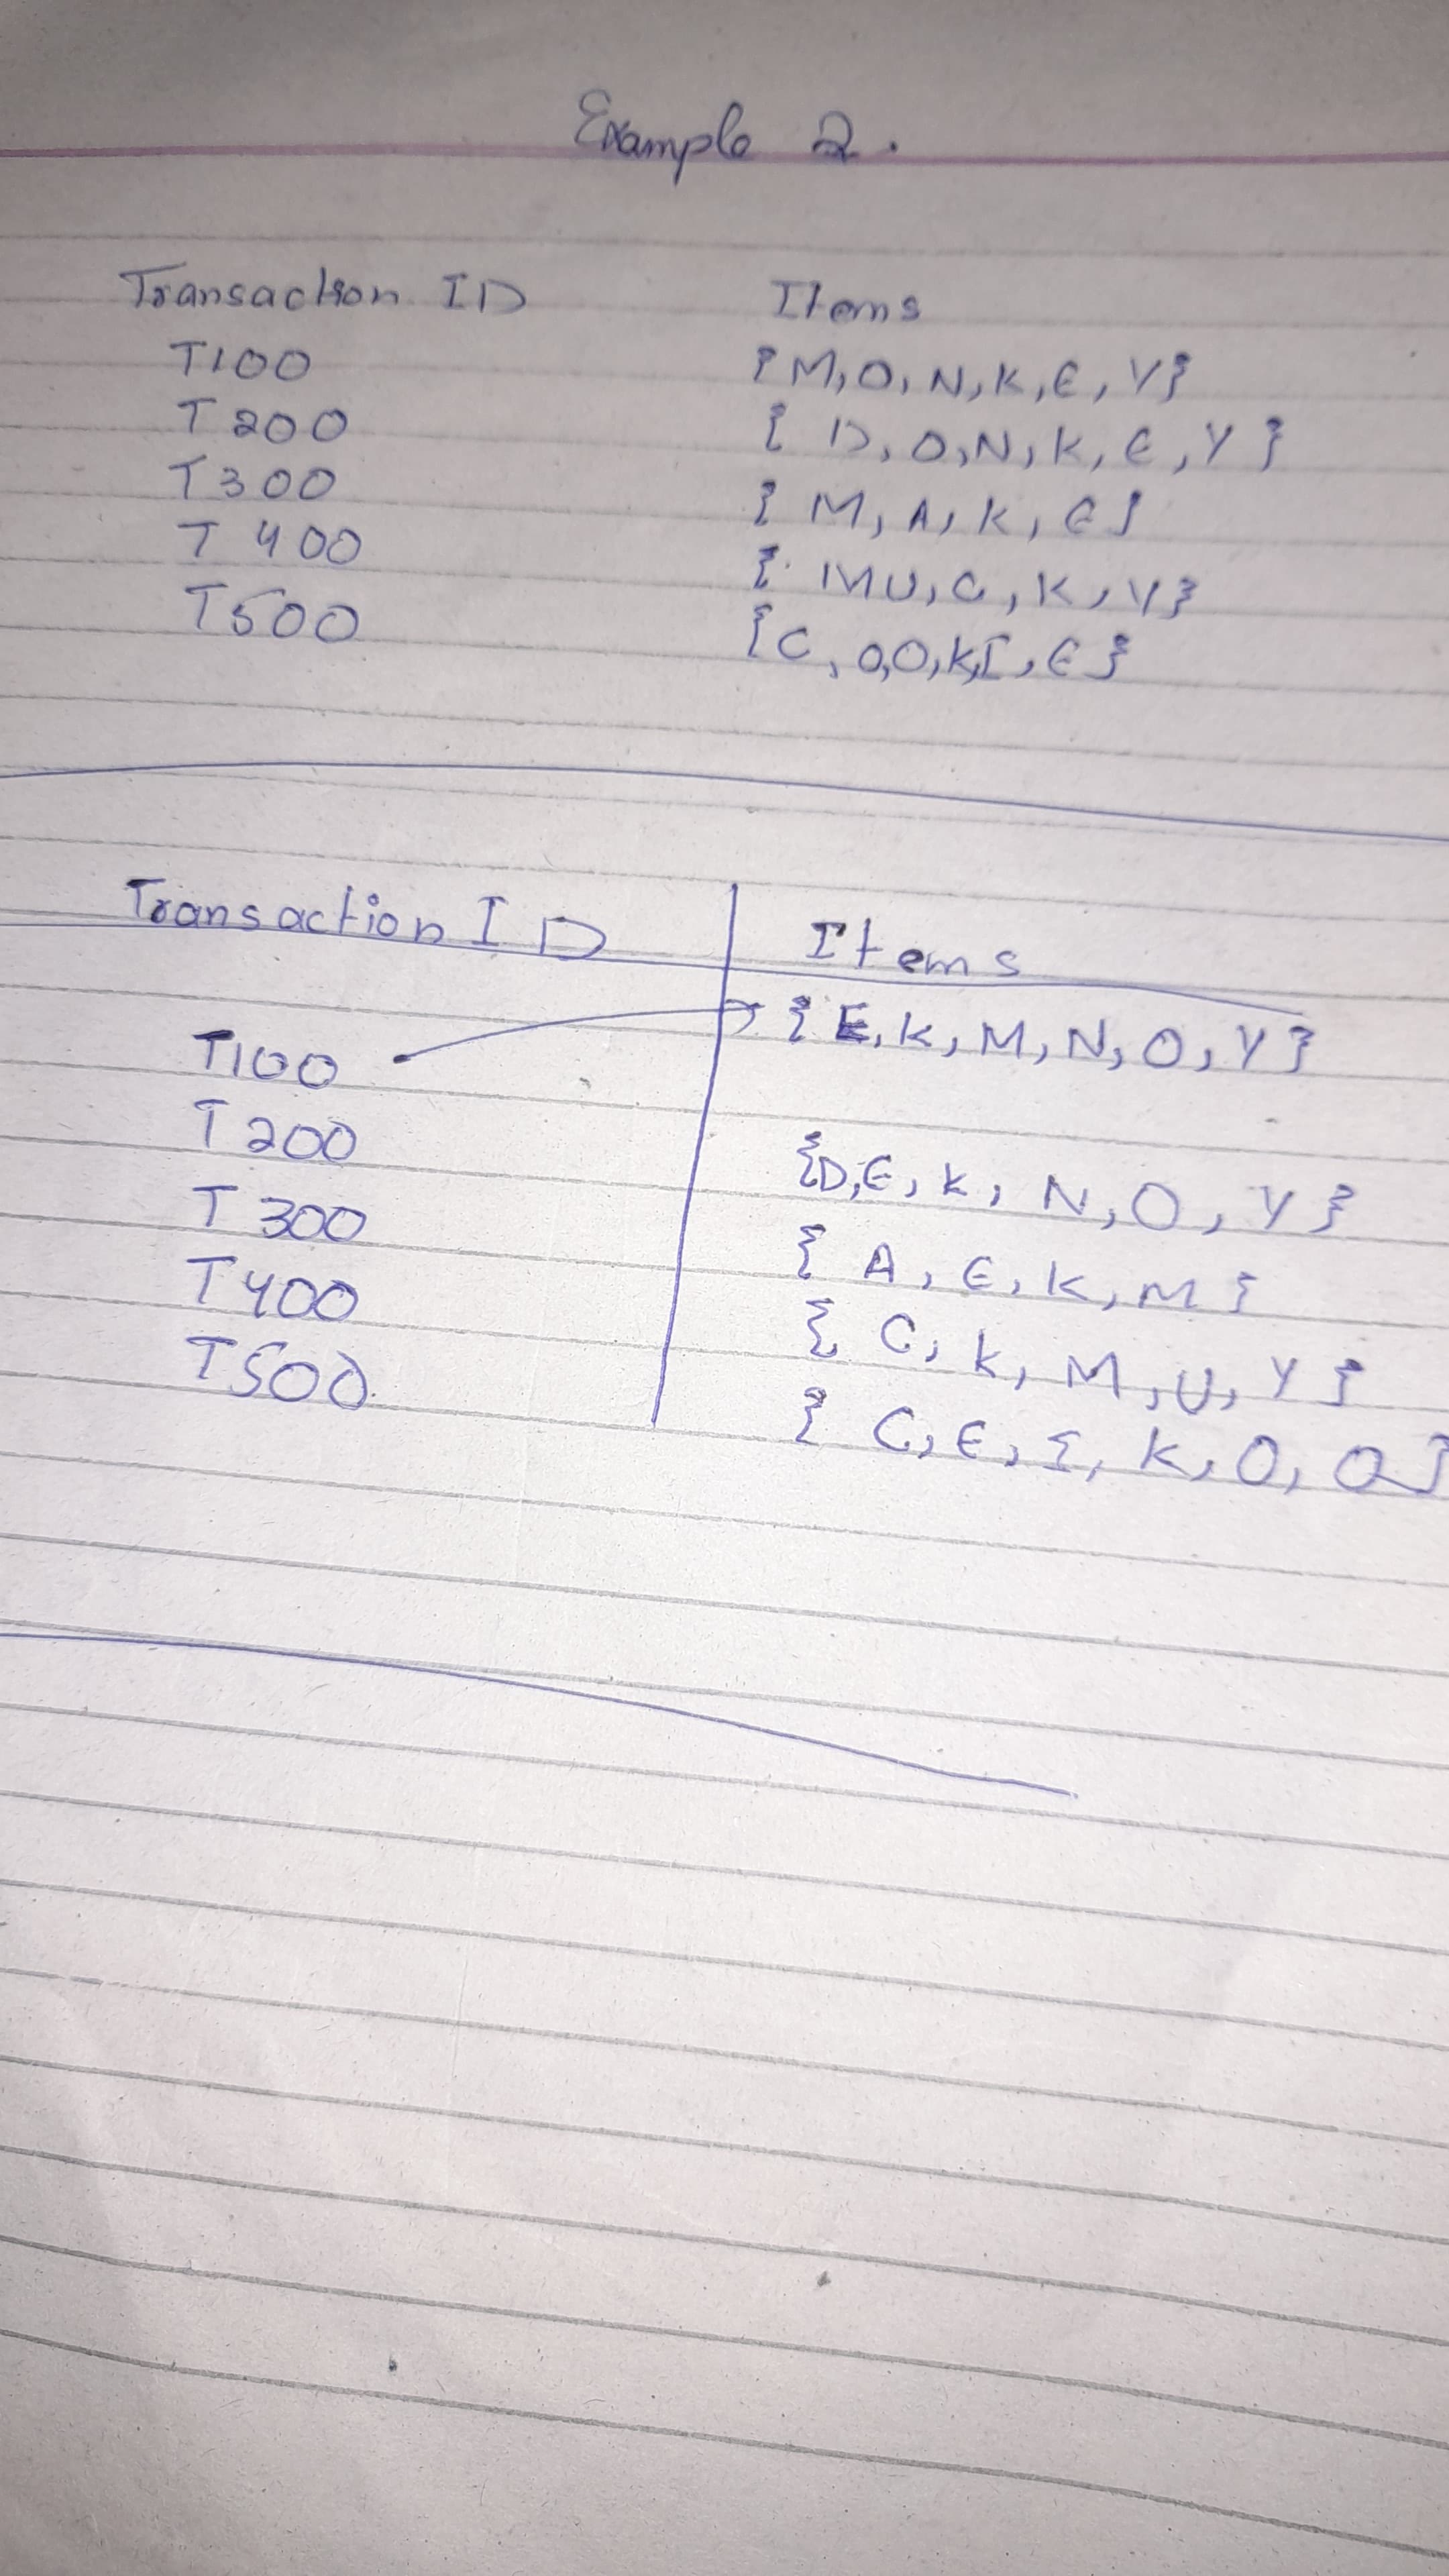 Example 2.
Transaction ID Items
T100 {M,O,N,K,E,Y}
T200 {D,O,N,K,E,Y}
T300 {M,A,K,E}
T400 {MU,C,K,Y}
T500 {C,O,O,K,I,E}
Transaction ID Items
T100 {E,K,M,N,O,Y}
T200 {D,E,K,N,O,Y}
T300 {A,E,K,M}
T400 {C,K,M,U,Y}
T500 {C,E,I,K,O,O}